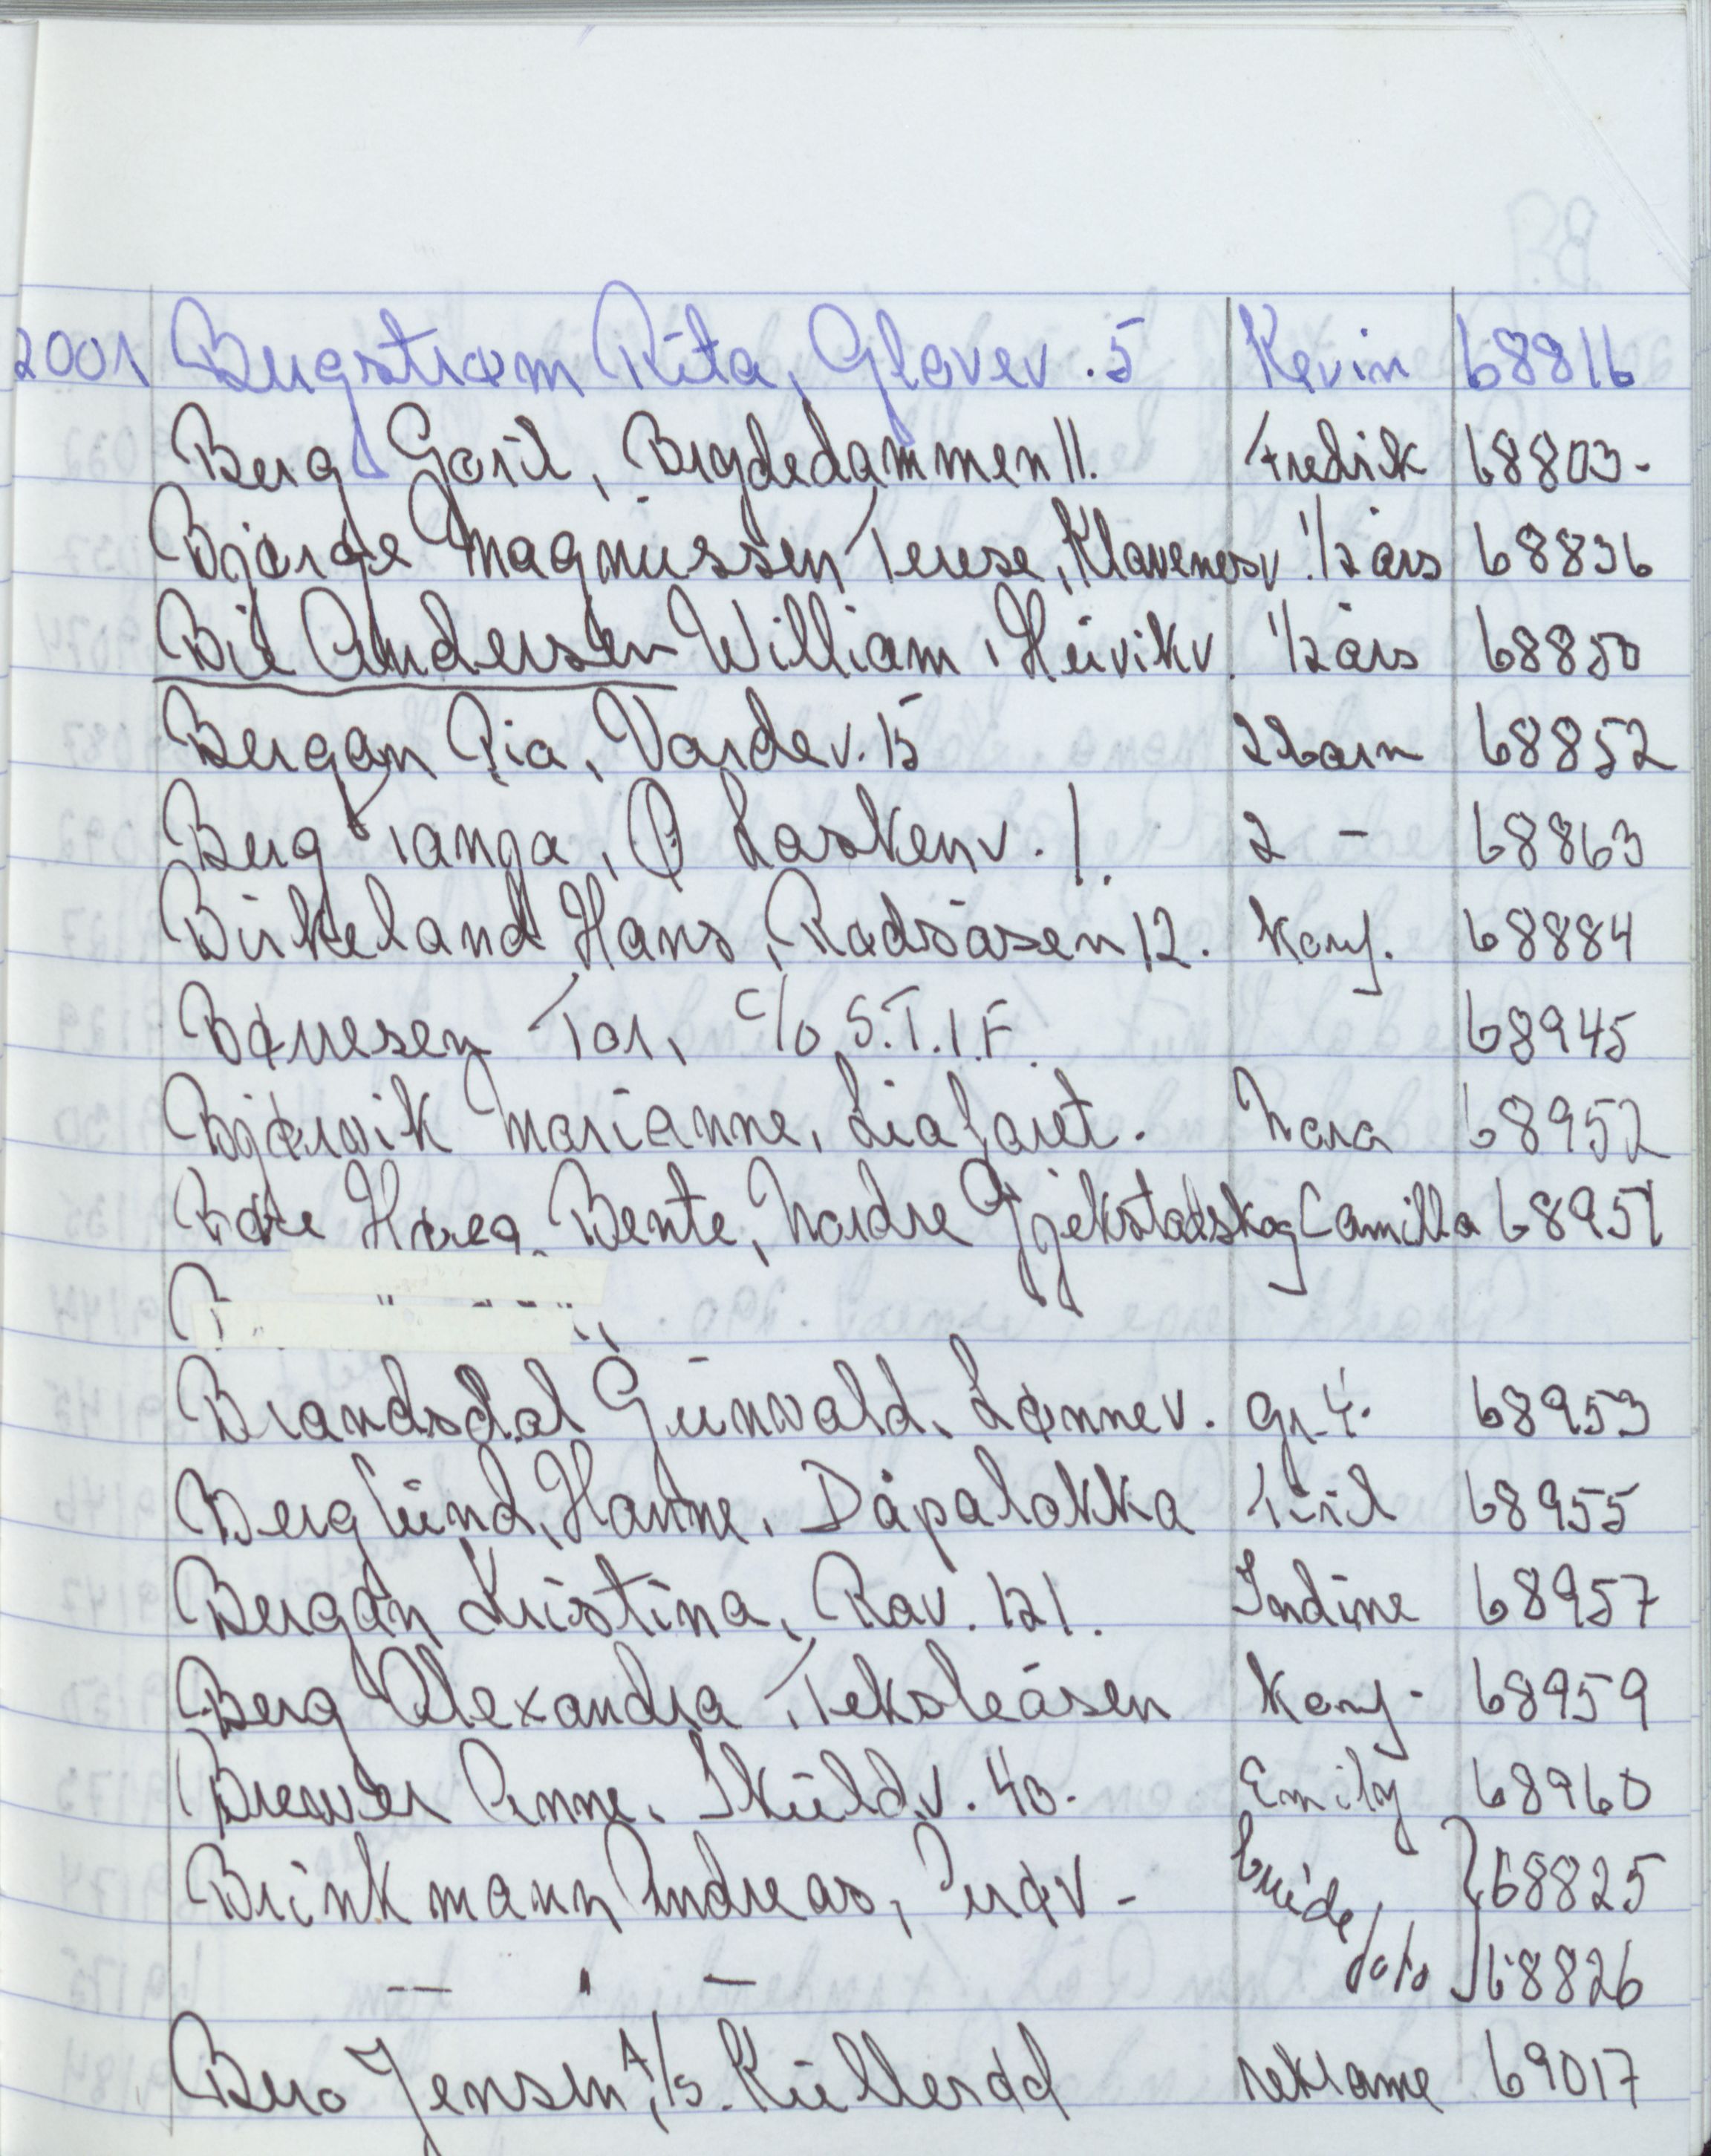 2001 Bergstrøm Rita, Glavev. 5 Kevin 68816
Berg Goril, Brydedammen 11. Fredrik 68803.
Bjørge Magnussen Terese, Klavenesv. 1/2 års 68836
Bie Andersen William, Huvikv. 1/2 års 68850
Bergan Pia, Vardev. 15 2 barn 68852
Berg Tanga, Ø Laskenv. 1. 2 - 68863
Birkeland Hans, Rødsåsen 12. konf. 68884
Børresen Tor, c/o S.T.I.F. 68945
Bjørvik Marianne, Liafaret. Nora 68952
Bøe Høeg Bente, Nordre Gjekstadskog Camilla 68951
Brandsdal Gunvald, Lønnev. gr. 4. 68953
Berglund, Hanne, Dåpaløkka Tiril 68955
Bergan Kristina, Rav. 121. Indine 68957
Berg Alexandra, Teksleåsen konf. 68959
Brewer Anne, Skuldv. 43. Emily 68960
Brinkmann Andreas, Perøv - brude 68825
— " — foto 68826
Bero Jensen A/s. Kullerød reklame 69017